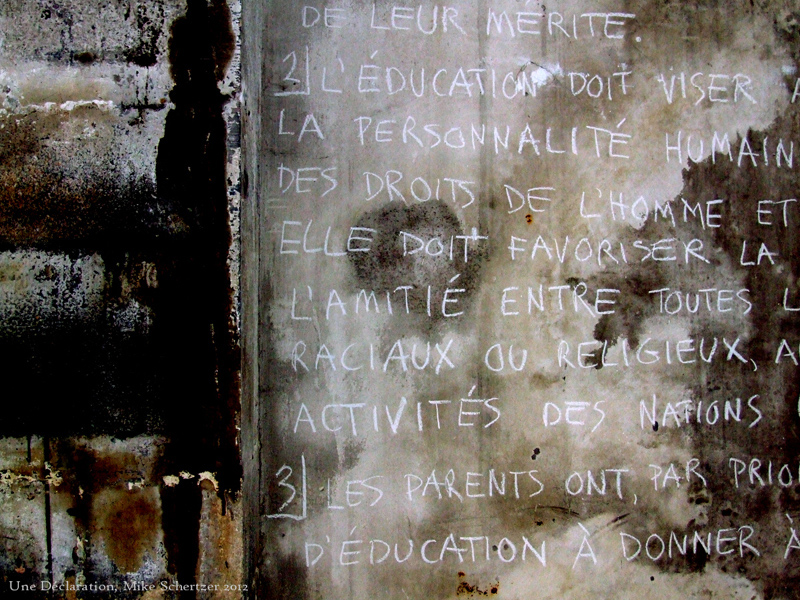 DE LEUR MÉRITE.
2 L'ÉDUCATION DOIT VISER À
LA PERSONNALITÉ HUMAIN
DES DROITS DE L'HOMME ET
ELLE DOIT FAVORISER LA
L'AMITIÉ ENTRE TOUTES L
RACIAUX OU RELIGIEUX, A
ACTIVITÉS DES NATIONS
3 LES PARENTS ONT, PAR PRIO
D'ÉDUCATION À DONNER À
Une Déclaration, Mike Schertzer 2012